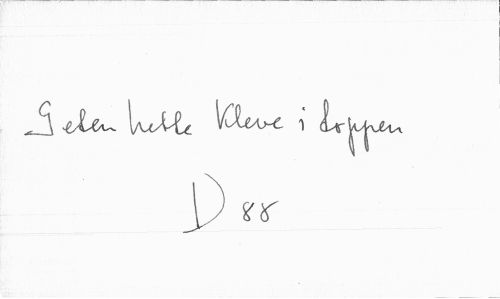 Geten hette Kleve i toppen
D 88